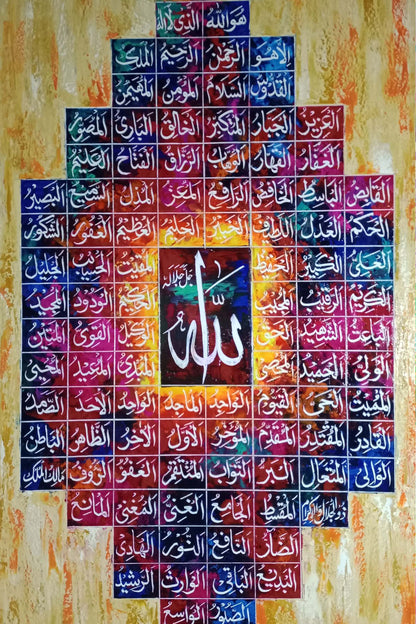 هُوَ اللهُ الَّذِي لَا إِلٰهَ
إِلَّا هُوَ الرَّحْمٰنُ الرَّحِيْمُ الْمَلِكُ
الْقُدُّوْسُ السَّلَامُ الْمُؤْمِنُ الْمُهَيْمِنُ
الْعَزِيْزُ الْجَبَّارُ الْمُتَكَبِّرُ الْخَالِقُ الْبَارِئُ الْمُصَوِّرُ
الْغَفَّارُ الْقَهَّارُ الْوَهَّابُ الرَّزَّاقُ الْفَتَّاحُ الْعَلِيْمُ
الْقَابِضُ الْبَاسِطُ الْخَافِضُ الرَّافِعُ الْمُعِزُّ الْمُذِلُّ السَّمِيْعُ الْبَصِيْرُ
الْحَكَمُ الْعَدْلُ اللَّطِيْفُ الْخَبِيْرُ الْحَلِيْمُ الْعَظِيْمُ الْغَفُوْرُ الشَّكُوْرُ
الْعَلِيُّ الْكَبِيْرُ الْحَفِيْظُ الْمُقِيْتُ الْحَسِيْبُ الْجَلِيْلُ
الْكَرِيْمُ الرَّقِيْبُ الْمُجِيْبُ الْحَكِيْمُ الْوَدُوْدُ الْمَجِيْدُ
الْبَاعِثُ الشَّهِيْدُ الْحَقُّ الْوَكِيْلُ الْقَوِيُّ الْمَتِيْنُ
الْوَلِيُّ الْحَمِيْدُ الْمُحْصِي الْمُبْدِئُ الْمُعِيْدُ الْمُحْيِي
اللّٰه جل جلالہ
الْمُمِيْتُ الْحَيُّ الْقَيُّوْمُ الْوَاجِدُ الْمَاجِدُ الْوَاحِدُ الْأَحَدُ الصَّمَدُ
الْقَادِرُ الْمُقْتَدِرُ الْمُقَدِّمُ الْمُؤَخِّرُ الْأَوَّلُ الْآخِرُ الظَّاهِرُ الْبَاطِنُ
الْوَالِي الْمُتَعَالُ الْبَرُّ التَّوَّابُ الْمُنْتَقِمُ الْعَفُوُّ الرَّؤُفُ مَالِكُ الْمُلْكِ
ذُوالْجَلَالِ وَالْإِكْرَامِ الْمُقْسِطُ الْجَامِعُ الْغَنِيُّ الْمُغْنِيُّ الْمَانِعُ
الضَّارُّ النَّافِعُ النُّوْرُ الْهَادِي
الْبَدِيْعُ الْبَاقِي الْوَارِثُ الرَّشِيْدُ
الصَّبُوْرُ الْوَاسِعُ